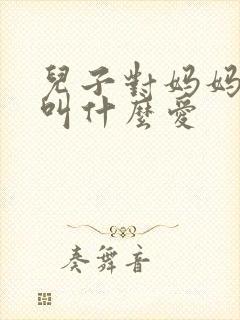 兒子對媽媽
叫什麼愛
奏舞音